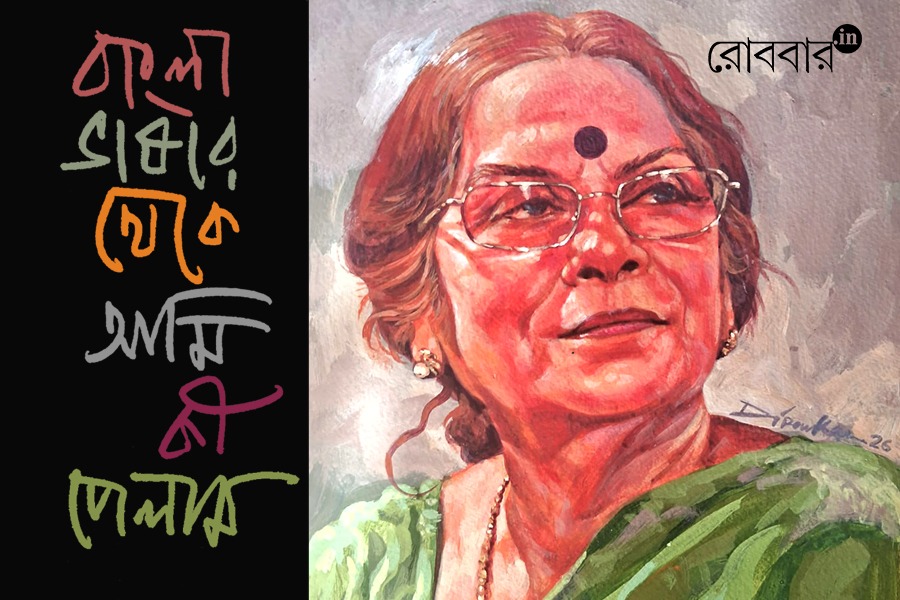 বাংলা
ভাষার
থেকে
আমি
কী
পেলাম
রোববার.in
Dipankar 26